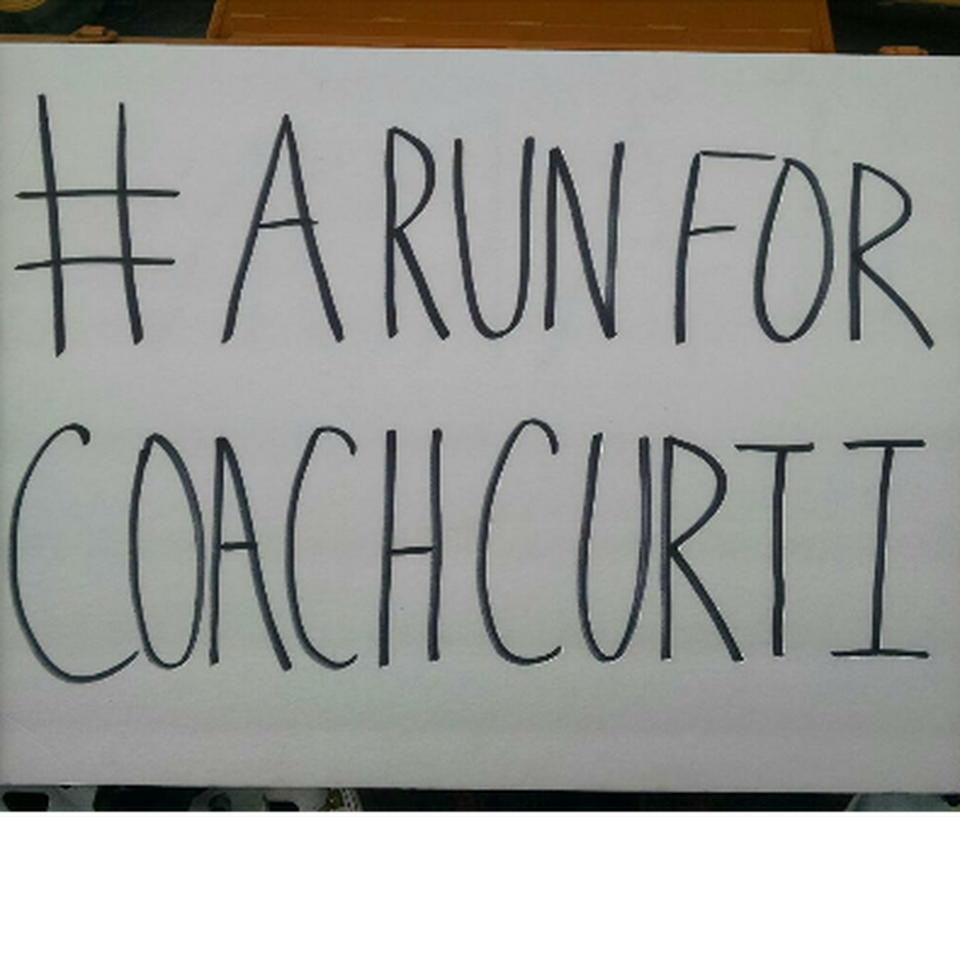 # A RUN FOR
COACH CURTI